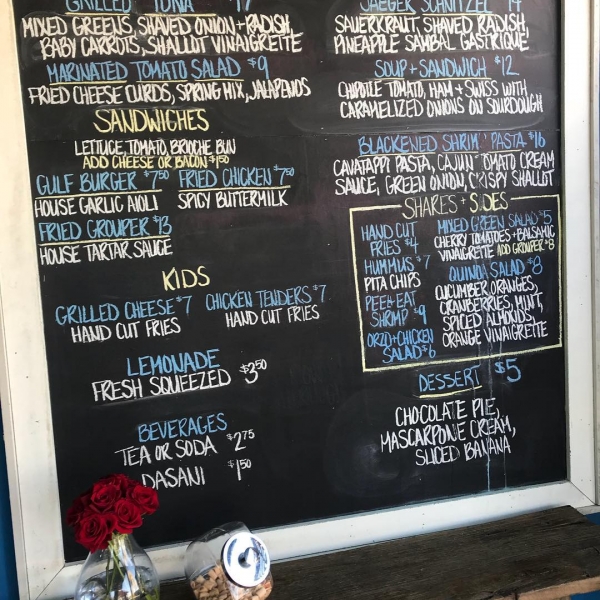 GRILLED TUNA 17
MIXED GREENS, SHAVED ONION + RADISH,
BABY CARROTS, SHALLOT VINAIGRETTE
MARINATED TOMATO SALAD $9
FRIED CHEESE CURDS, SPRING MIX, JALAPENOS
SANDWICHES
LETTUCE, TOMATO, BRIOCHE BUN
ADD CHEESE OR BACON $1.50
GULF BURGER $7.50
HOUSE GARLIC AIOLI
FRIED CHICKEN $7.50
SPICY BUTTERMILK
FRIED GROUPER $13
HOUSE TARTAR SAUCE
KIDS
GRILLED CHEESE $7
HAND CUT FRIES
CHICKEN TENDERS $7
HAND CUT FRIES
LEMONADE
FRESH SQUEEZED $3.50
BEVERAGES
TEA OR SODA $2.75
DASANI $1.50
JAEGER SCHNITZEL 14
SAUERKRAUT, SHAVED RADISH,
PINEAPPLE SAMBAL GASTRIQUE
SOUP + SANDWICH $12
CHIPOTLE TOMATO, HAM + SWISS WITH
CARAMELIZED ONIONS ON SOURDOUGH
BLACKENED SHRIMP PASTA $16
CAVATAPPI PASTA, CAJUN TOMATO CREAM
SAUCE, GREEN ONION, CRISPY SHALLOT
SHARES + SIDES
HAND CUT
FRIES $4
HUMMUS $7
PITA CHIPS
PEEL + EAT
SHRIMP $9
ORZO + CHICKEN
SALAD $6
MIXED GREEN SALAD $5
CHERRY TOMATOES + BALSAMIC
VINAIGRETTE ADD GROUPER $8
QUINOA SALAD $8
CUCUMBER, ORANGES,
CRANBERRIES, MINT,
SPICED ALMONDS,
ORANGE VINAIGRETTE
DESSERT $5
CHOCOLATE PIE,
MASCARPONE CREAM,
SLICED BANANA